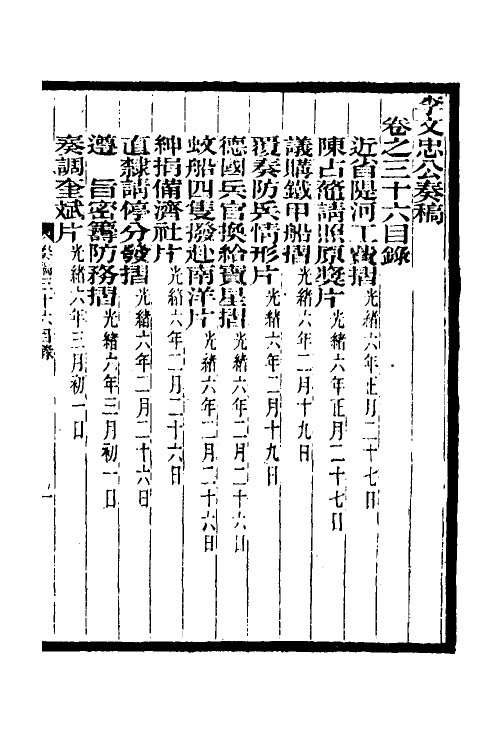 李文忠公奏稿
卷之三十六目錄
近省隄河工竣摺光緒六年正月二十七日
陳占鼇請照原獎片光緒六年正月二十七日
議購鐵甲船摺光緒六年二月十九日
覆奏防兵情形片光緒六年二月十九日
德國兵官換給寶星摺光緒六年二月二十六日
蚊船四隻撥赴南洋片光緒六年二月二十六日
紳捐備濟社片光緒六年二月二十六日
直隸請停分發摺光緒六年二月二十六日
遵 旨密籌防務摺光緒六年三月初一日
奏調奎斌片光緒六年三月初一日
奏稿三十六目錄 一